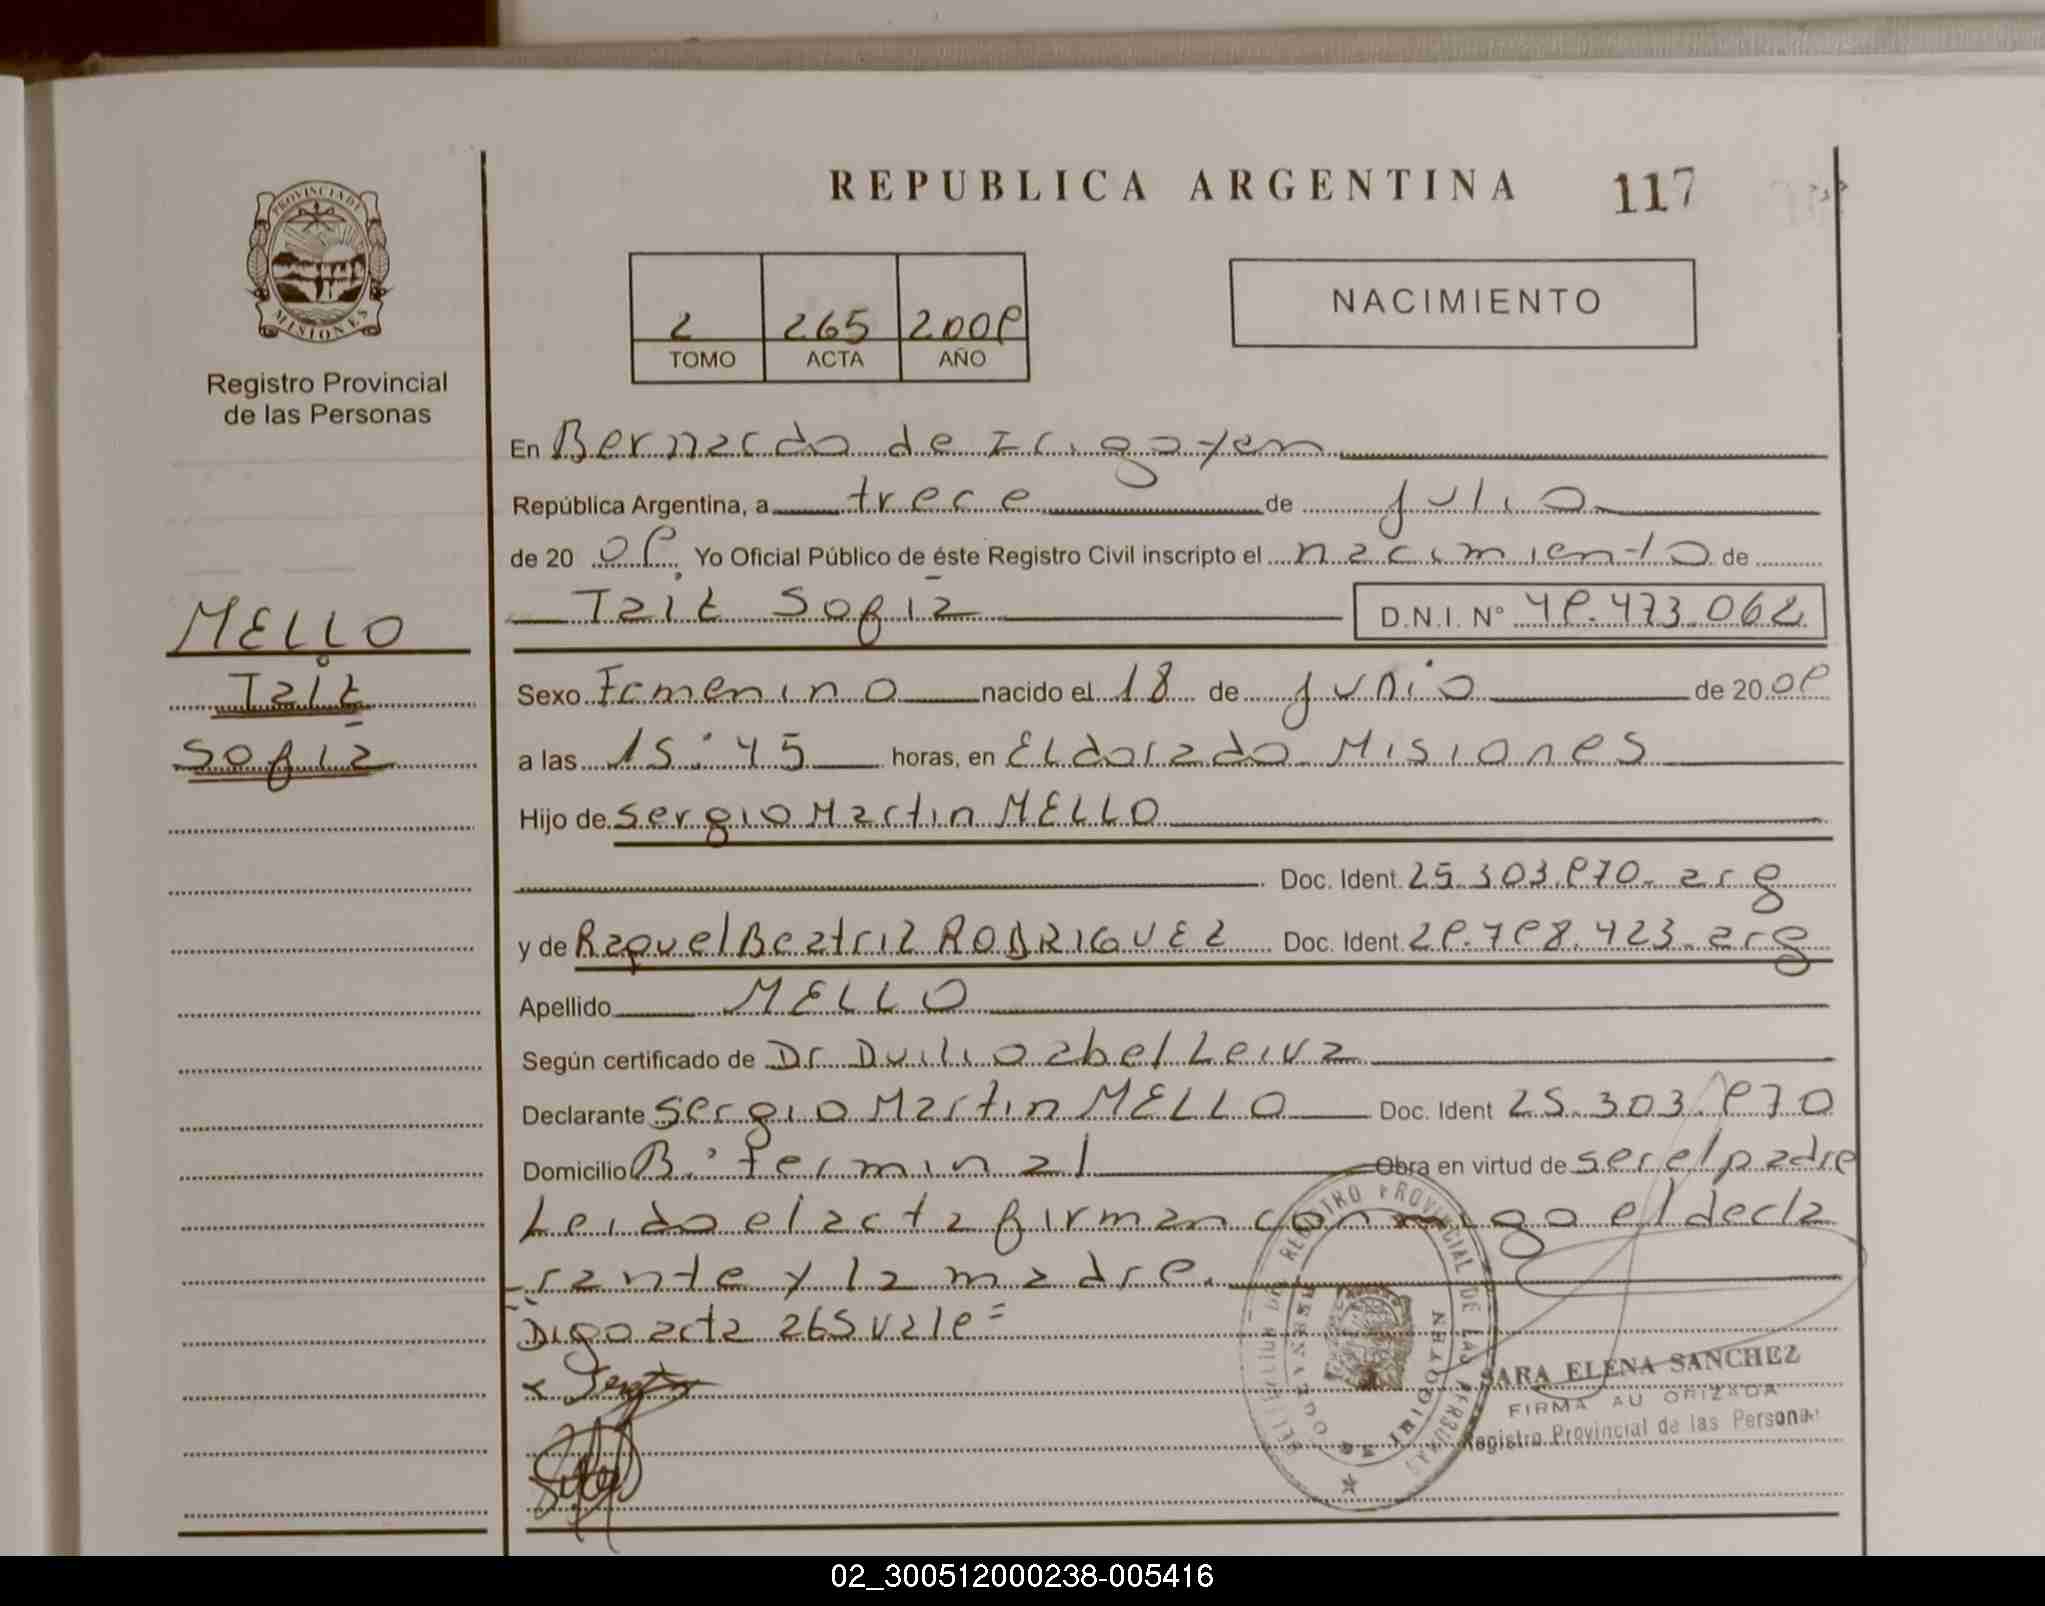 REPUBLICA ARGENTINA 117
PROVINCIA DE
MISIONES
Registro Provincial
de las Personas
2 265 2009
TOMO ACTA AÑO
NACIMIENTO
En Bernardo de Irigoyen
República Argentina, a trece de julio
de 20 09. Yo Oficial Público de éste Registro Civil inscripto el nacimiento de
Tait Sofia D.N.I. N° 49.473.062
MELLO
Tait
Sofia
Sexo Femenino nacido el 18 de junio de 20 09
a las 15:45 horas, en Eldorado Misiones
Hijo de Sergio Martin MELLO
Doc. Ident. 25.303.970- arg
y de Raquel Beatriz RODRIGUEZ Doc. Ident. 29.798.423- arg
Apellido MELLO
Según certificado de Dr Duilio abel Leiva
Declarante Sergio Martin MELLO Doc. Ident 25.303.970
Domicilio B.° terminal Obra en virtud de ser el padre
Leido el acta firman conmigo el decla
rante y la madre.
Digo acta 265 vale=
REGISTRO PROVINCIAL DE LAS PERSONAS
BERNARDO DE IRIGOYEN
SARA ELENA SANCHEZ
FIRMA AUTORIZADA
Registro Provincial de las Personas
02_300512000238-005416